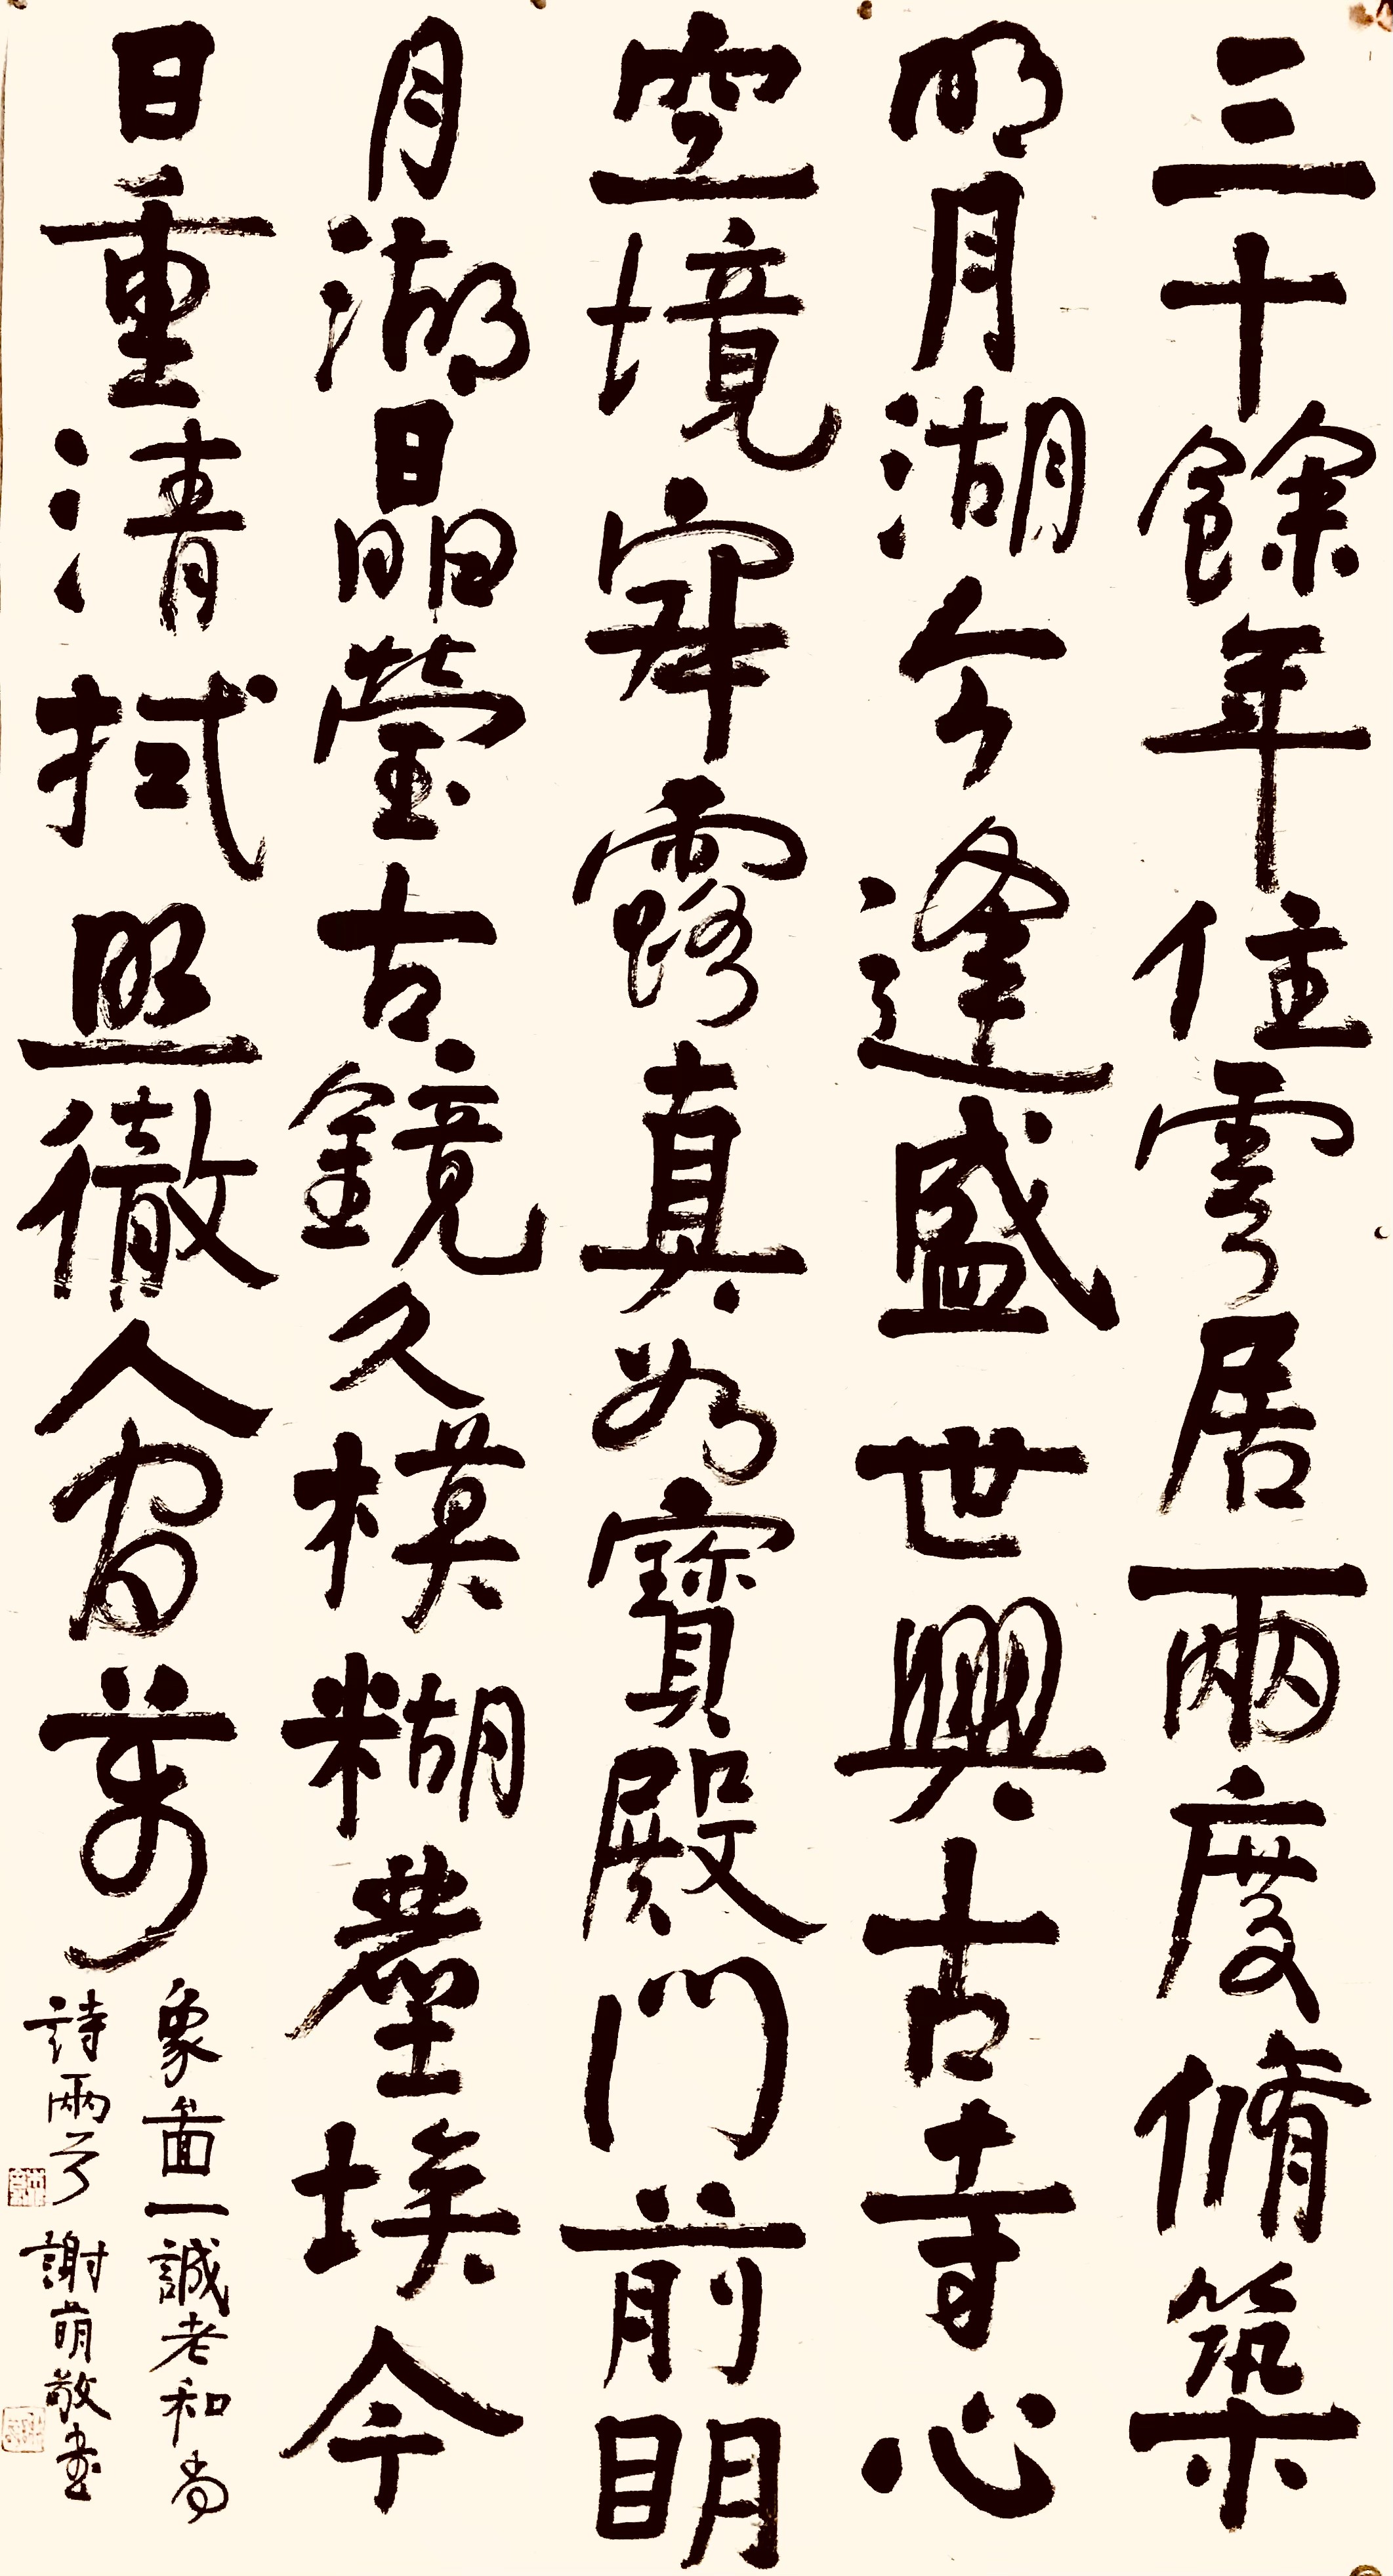 三十餘年住雲居兩度脩築
明月湖今逢盛世興古寺心
空境寂露真如寶殿門前明
月湖晶瑩古鏡久模糊塵埃今
日重清拭照徹人間萬
象圖一誠老和尚
詩兩首 謝萌敬書